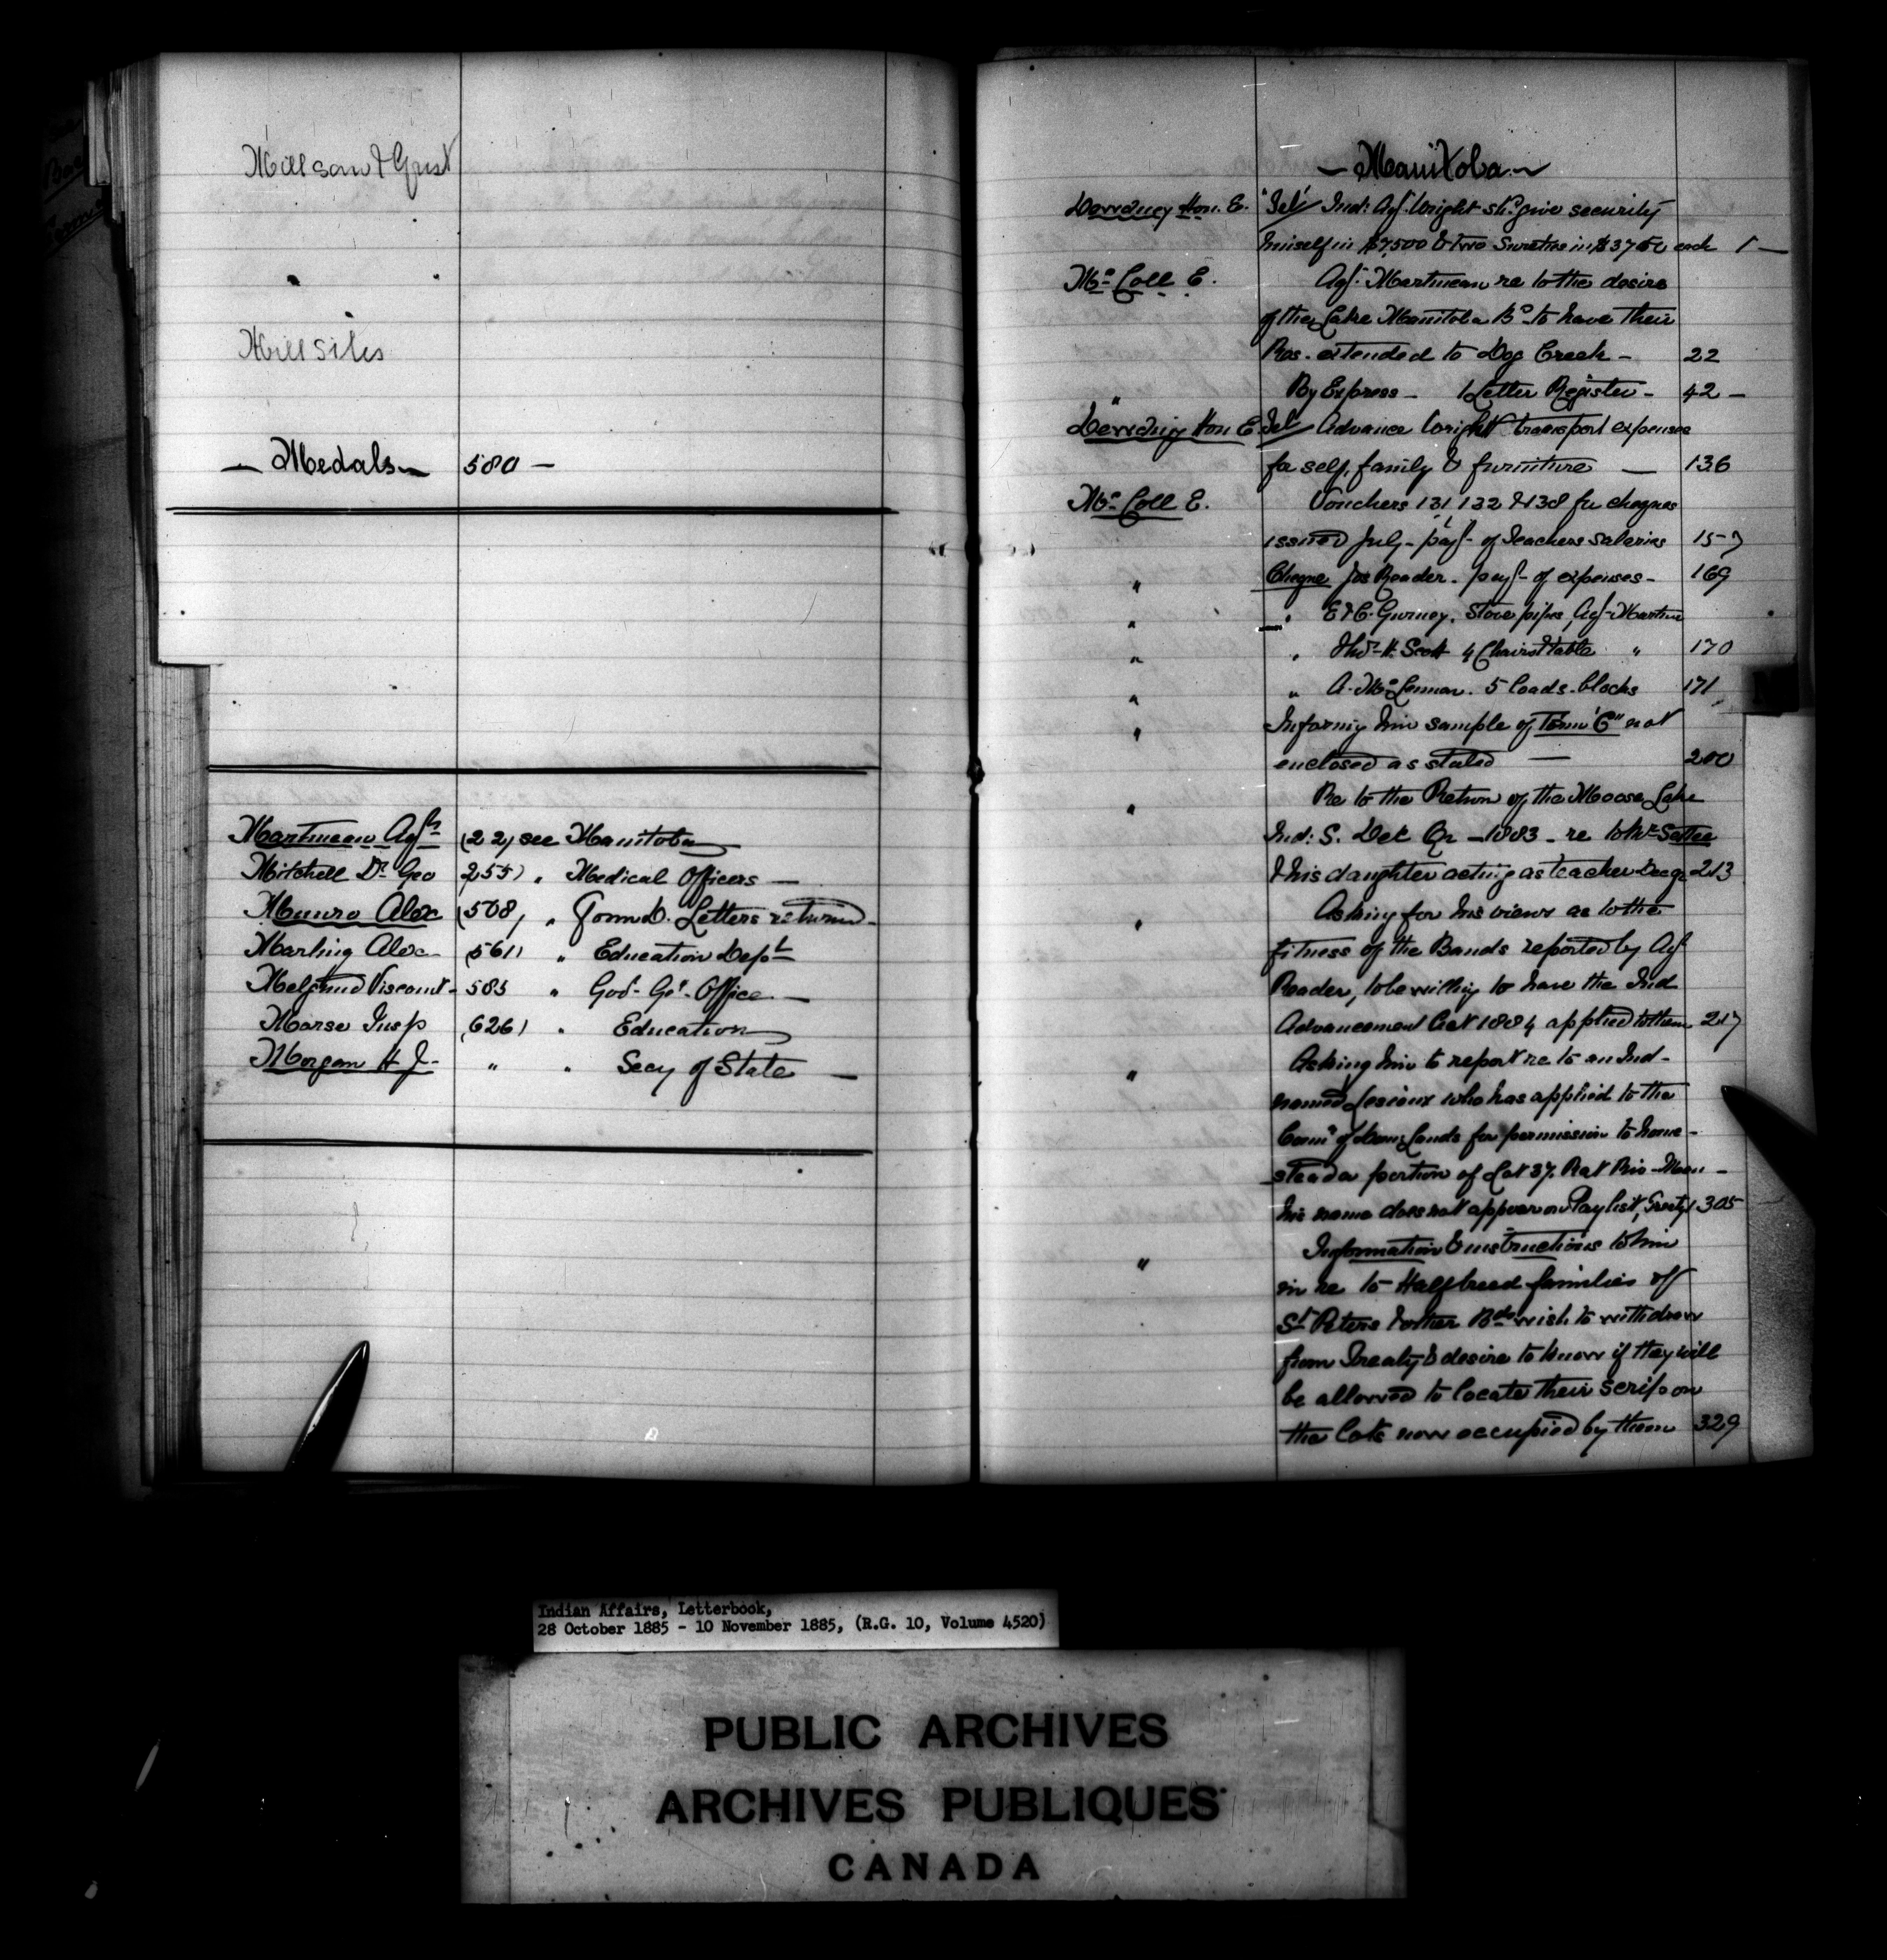 Mill saw & Grist
Mill Sites
— Medals — 580 —
Martineau Agt (22) see Manitoba
Mitchell Dr Geo 255) " Medical Officers —
Munro Alex (508) " Form D. Letters returned —
Marling Alex (561) " Education Dept
Melgund Viscount - 583 " Govr Gel Office —
Morse Insp (626) " Education
Morgan H J - " " Secy of State —
— Manitoba —
Dewdney Hon. E. Tel/ Ind: Agt Wright shd give security
himself in $7,500 & two Sureties in $3750 each 1 —
McColl E. Agt Martineau re to the desire
of the Lake Manitoba Bd to have their
Res. extended to Dog Creek - 22
" By Express - 1 Letter Register - 42 -
Dewdney Hon E. Tel/ Advance Wright transport expenses
for self, family & furniture — 136
McColl E. Vouchers 131, 132 & 138 for cheques
issued July - payt of Teachers salaries 157
" Cheque Jos Reader. payt of expenses - 169
" " E & C. Gurney. Stove pipes, Agt Martineau
" " Thos H. Scott 4 Chairs & table " 170
" " A. McLennan. 5 loads blocks 171
" Informing him sample of Form "C" not
enclosed as stated — 200
" Re to the Return of the Moose Lake
Ind: S. Dec Qr - 1883 - re to Mr Settee
& his daughter acting as teacher 213
" Asking for his views as to the
fitness of the Bands reported by Agt
Reader, to be willing to have the Ind
Advancement Act 1884 applied to them 217
" Asking him to report re to an Ind -
named Lesieux who has applied to the
Comr of Dom: Lands for permission to home -
stead a portion of Lot 37. Rat Riv - Man -
his name does not appear on Pay list, Treaty 1 305
" Information & instructions to him
in re to Halfbreed families of
St Peters & other Bds wish to withdraw
from Treaty & desire to know if they will
be allowed to locate their scrip on
the lots now occupied by them 329
Indian Affairs, Letterbook,
28 October 1885 - 10 November 1885, (R.G. 10, Volume 4520)
PUBLIC ARCHIVES
ARCHIVES PUBLIQUES
CANADA